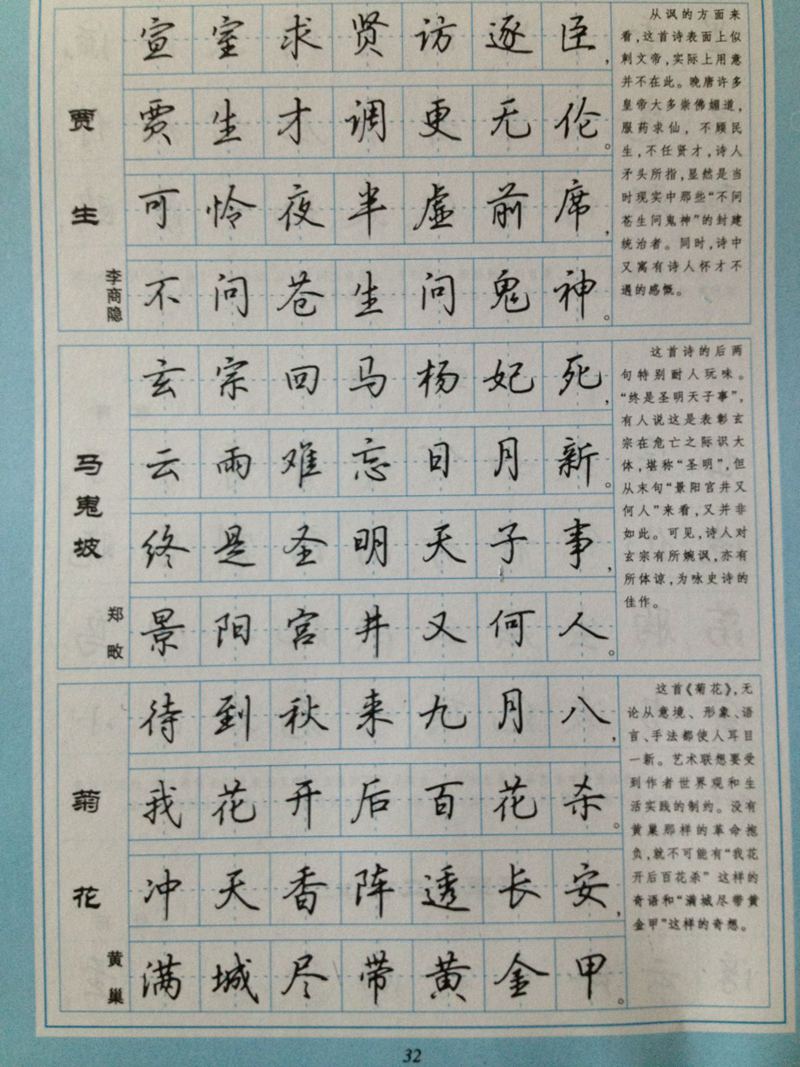 贾生
李商隐
宣室求贤访逐臣,
贾生才调更无伦。
可怜夜半虚前席,
不问苍生问鬼神。
从讽的方面来
看,这首诗表面上似
刺文帝,实际上用意
并不在此。晚唐许多
皇帝大多崇佛媚道,
服药求仙,不顾民
生,不任贤才,诗人
矛头所指,显然是当
时现实中那些“不问
苍生问鬼神”的封建
统治者。同时,诗中
又寓有诗人怀才不
遇的感慨。
马嵬坡
郑畋
玄宗回马杨妃死,
云雨难忘日月新。
终是圣明天子事,
景阳宫井又何人。
这首诗的后两
句特别耐人玩味。
“终是圣明天子事”,
有人说这是表彰玄
宗在危亡之际识大
体,堪称“圣明”,但
从末句“景阳宫井又
何人”来看,又并非
如此。可见,诗人对
玄宗有所婉讽,亦有
所体谅,为咏史诗的
佳作。
菊花
黄巢
待到秋来九月八,
我花开后百花杀。
冲天香阵透长安,
满城尽带黄金甲。
这首《菊花》,无
论从意境、形象、语
言、手法都使人耳目
一新。艺术联想要受
到作者世界观和生
活实践的制约。没有
黄巢那样的革命抱
负,就不可能有“我花
开后百花杀”这样的
奇语和“满城尽带黄
金甲”这样的奇想。
32